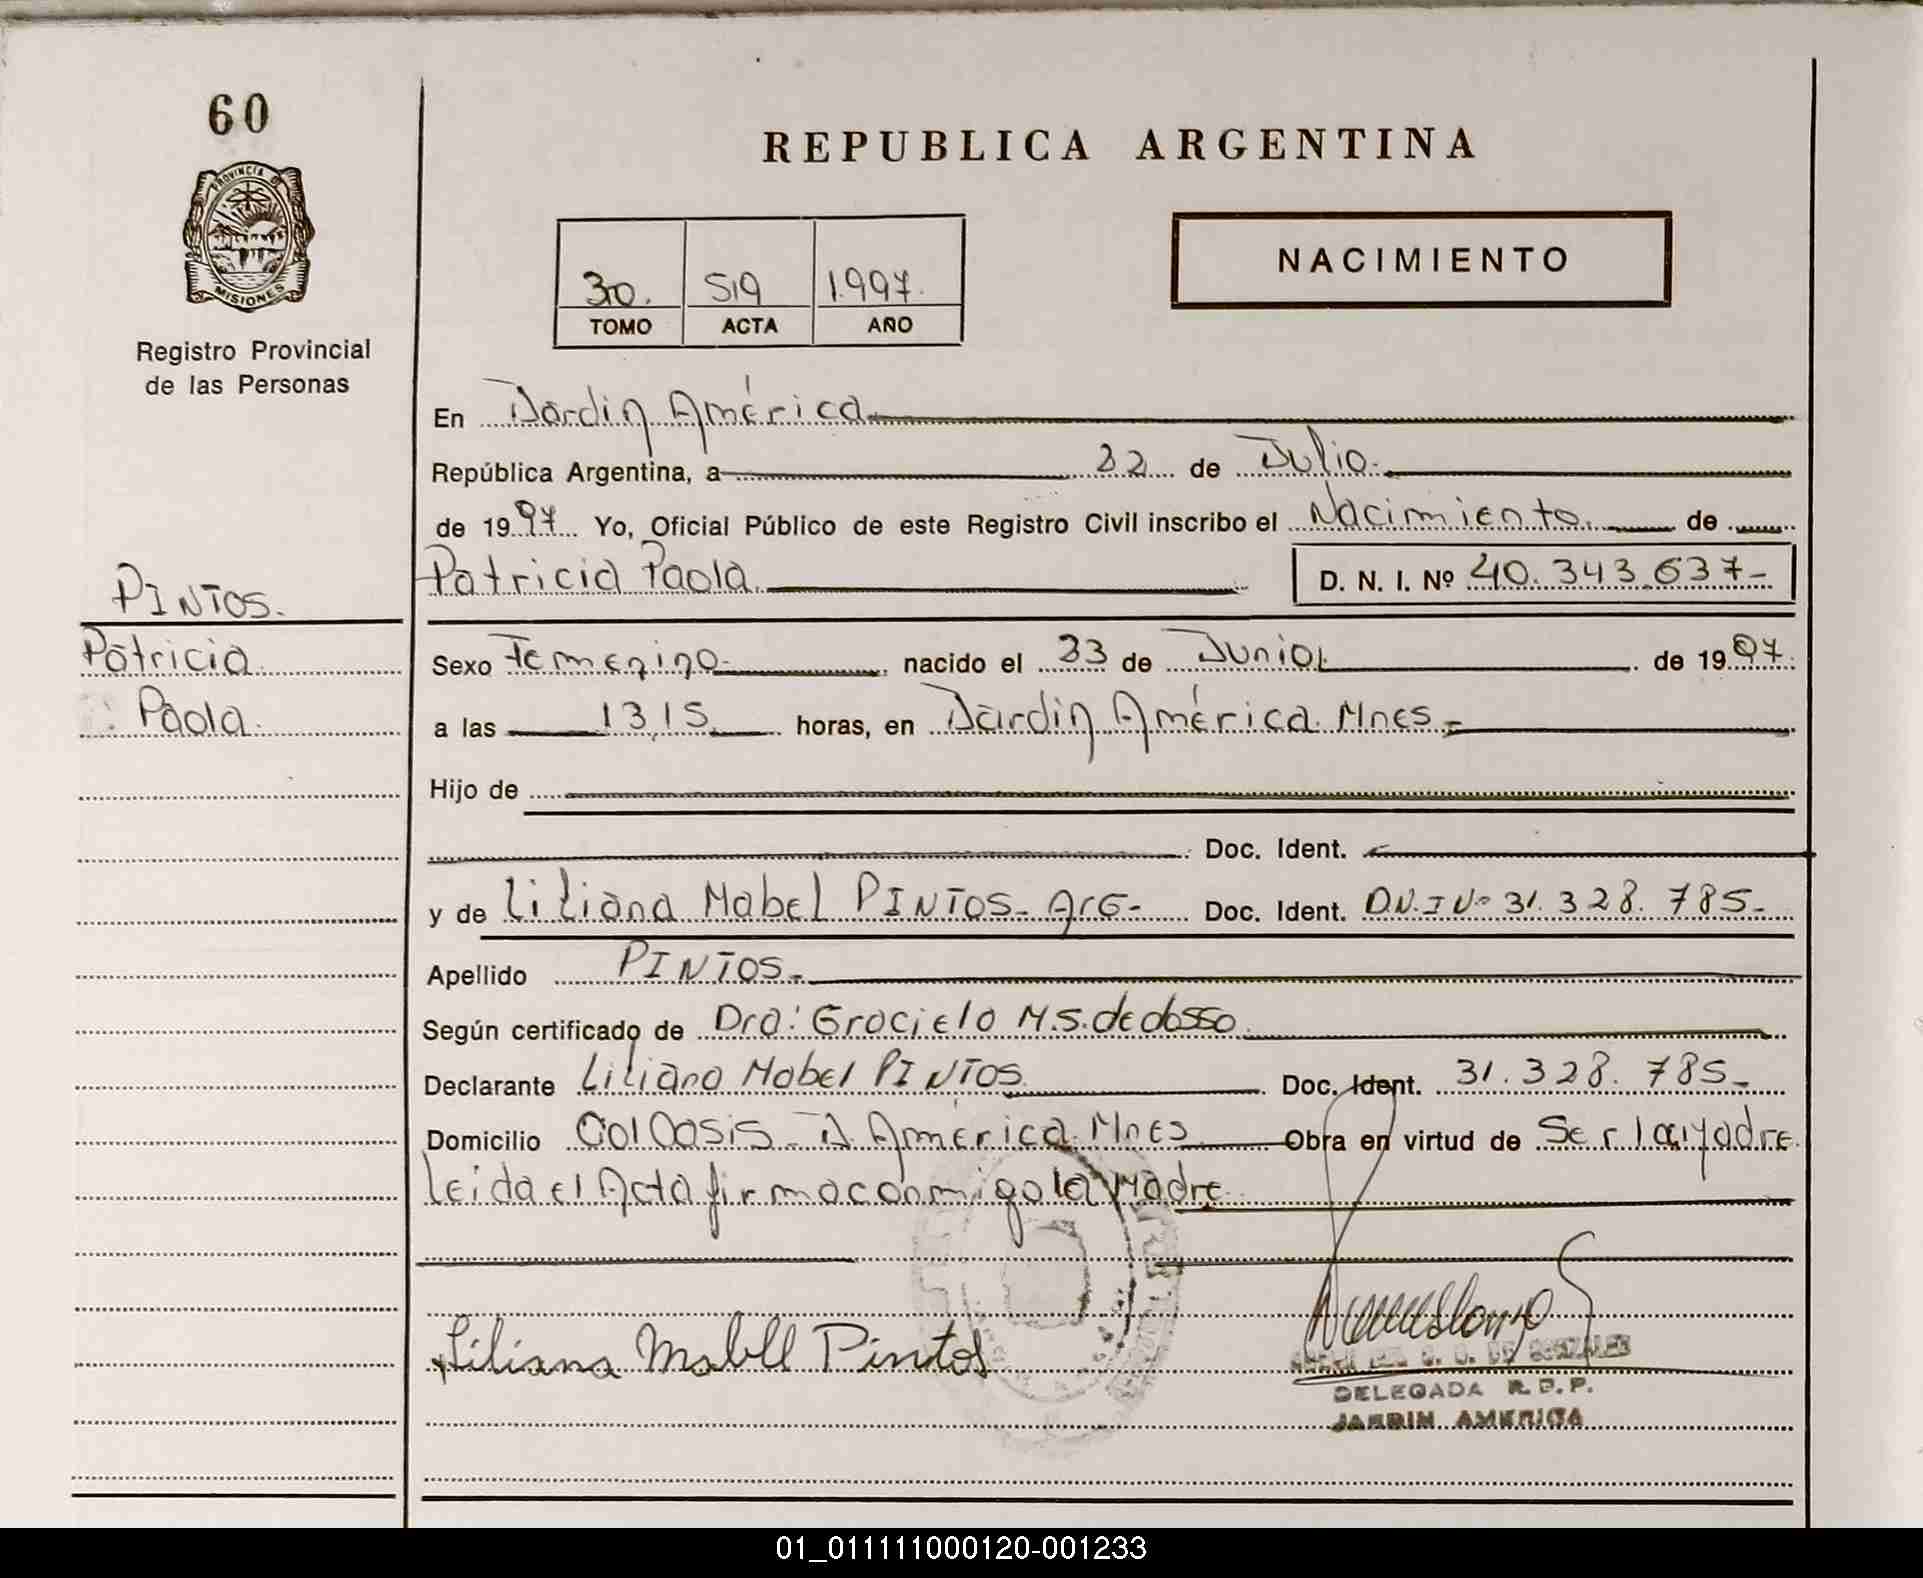 60
REPUBLICA ARGENTINA
PROVINCIA DE
MISIONES
Registro Provincial
de las Personas
30. 519 1.997.
TOMO ACTA AÑO
NACIMIENTO
En Jardin América
República Argentina, a 22 de Julio.
de 1997 Yo, Oficial Público de este Registro Civil inscribo el Nacimiento. de
Patricia Paola. D. N. I. Nº 40.343.637-
PINTOS.
Patricia
Paola.
Sexo Femenino nacido el 23 de Junio de 1997.
a las 13,15 horas, en Jardin América. Mnes-
Hijo de
Doc. Ident.
y de Liliana Mabel PINTOS- Arg- Doc. Ident. D.N.I Nº 31.328.785-
Apellido PINTOS-
Según certificado de Dra: Graciela M.S. de dosso
Declarante Liliana Mabel PINTOS Doc. Ident. 31.328.785-
Domicilio Col Oasis- J. América. Mnes Obra en virtud de Ser la Madre.
Leida el Acta firma conmigo la Madre
Liliana Mabell Pintos
DE GONZALEZ
DELEGADA R.P.P.
JARDIN AMERICA
01_011111000120-001233